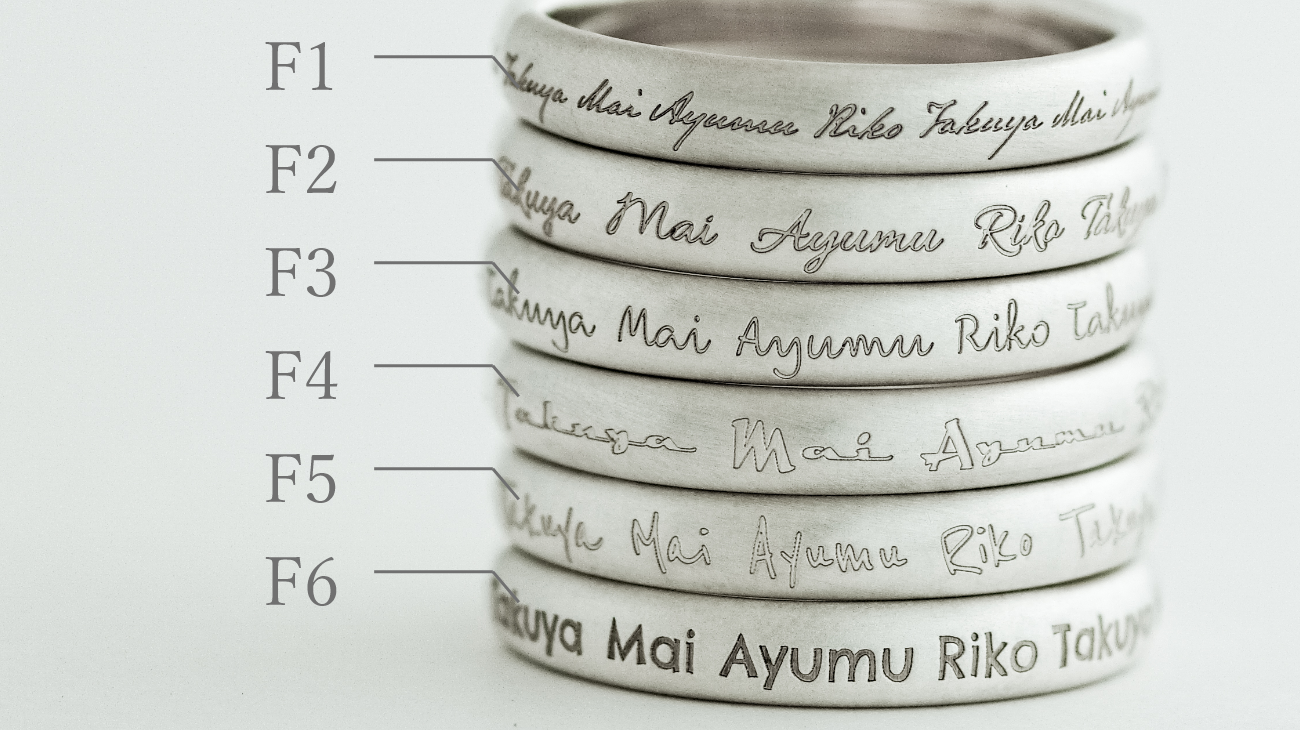 F1
Takuya Mai Ayumu Riko Takuya Mai
F2
Takuya Mai Ayumu Riko
F3
Takuya Mai Ayumu Riko
F4
Takuya Mai Ayumu
F5
Takuya Mai Ayumu Riko
F6
Takuya Mai Ayumu Riko Takuya